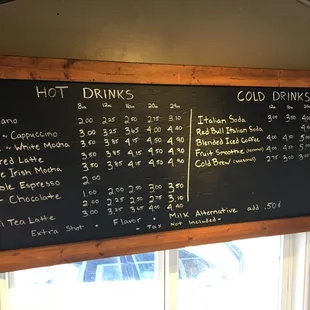 HOT DRINKS
8oz 12oz 16oz 20oz 24oz
ano 2.00 2.25 2.50 2.75 3.10
~ Cappuccino 3.00 3.25 3.65 4.00 4.40
~ White Mocha 3.50 3.85 4.15 4.50 4.90
red Latte 3.50 3.85 4.15 4.50 4.90
e Irish Mocha 3.50 3.85 4.15 4.50 4.90
ole Espresso 2.00
~ Chocolate 1.00
2.00 2.25 2.50 3.00 3.50
i Tea Latte 3.00 3.25 3.65 4.00 4.40
Extra Shot • Flavor • Tax Not included~
COLD DRINKS
Italian Soda 3.00 3.50
Red Bull Italian Soda
Blended Iced Coffee
Fruit Smoothie (seasonal)
Cold Brew (seasonal)
Milk Alternative add .50¢